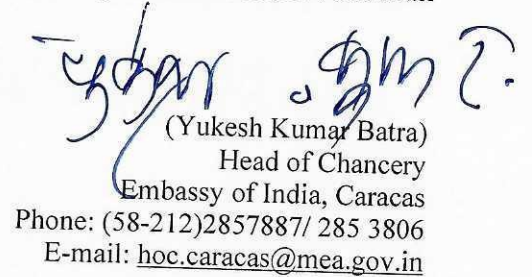 (Yukesh Kumar Batra)
Head of Chancery
Embassy of India, Caracas
Phone: (58-212)2857887/ 285 3806
E-mail: hoc.caracas@mea.gov.in